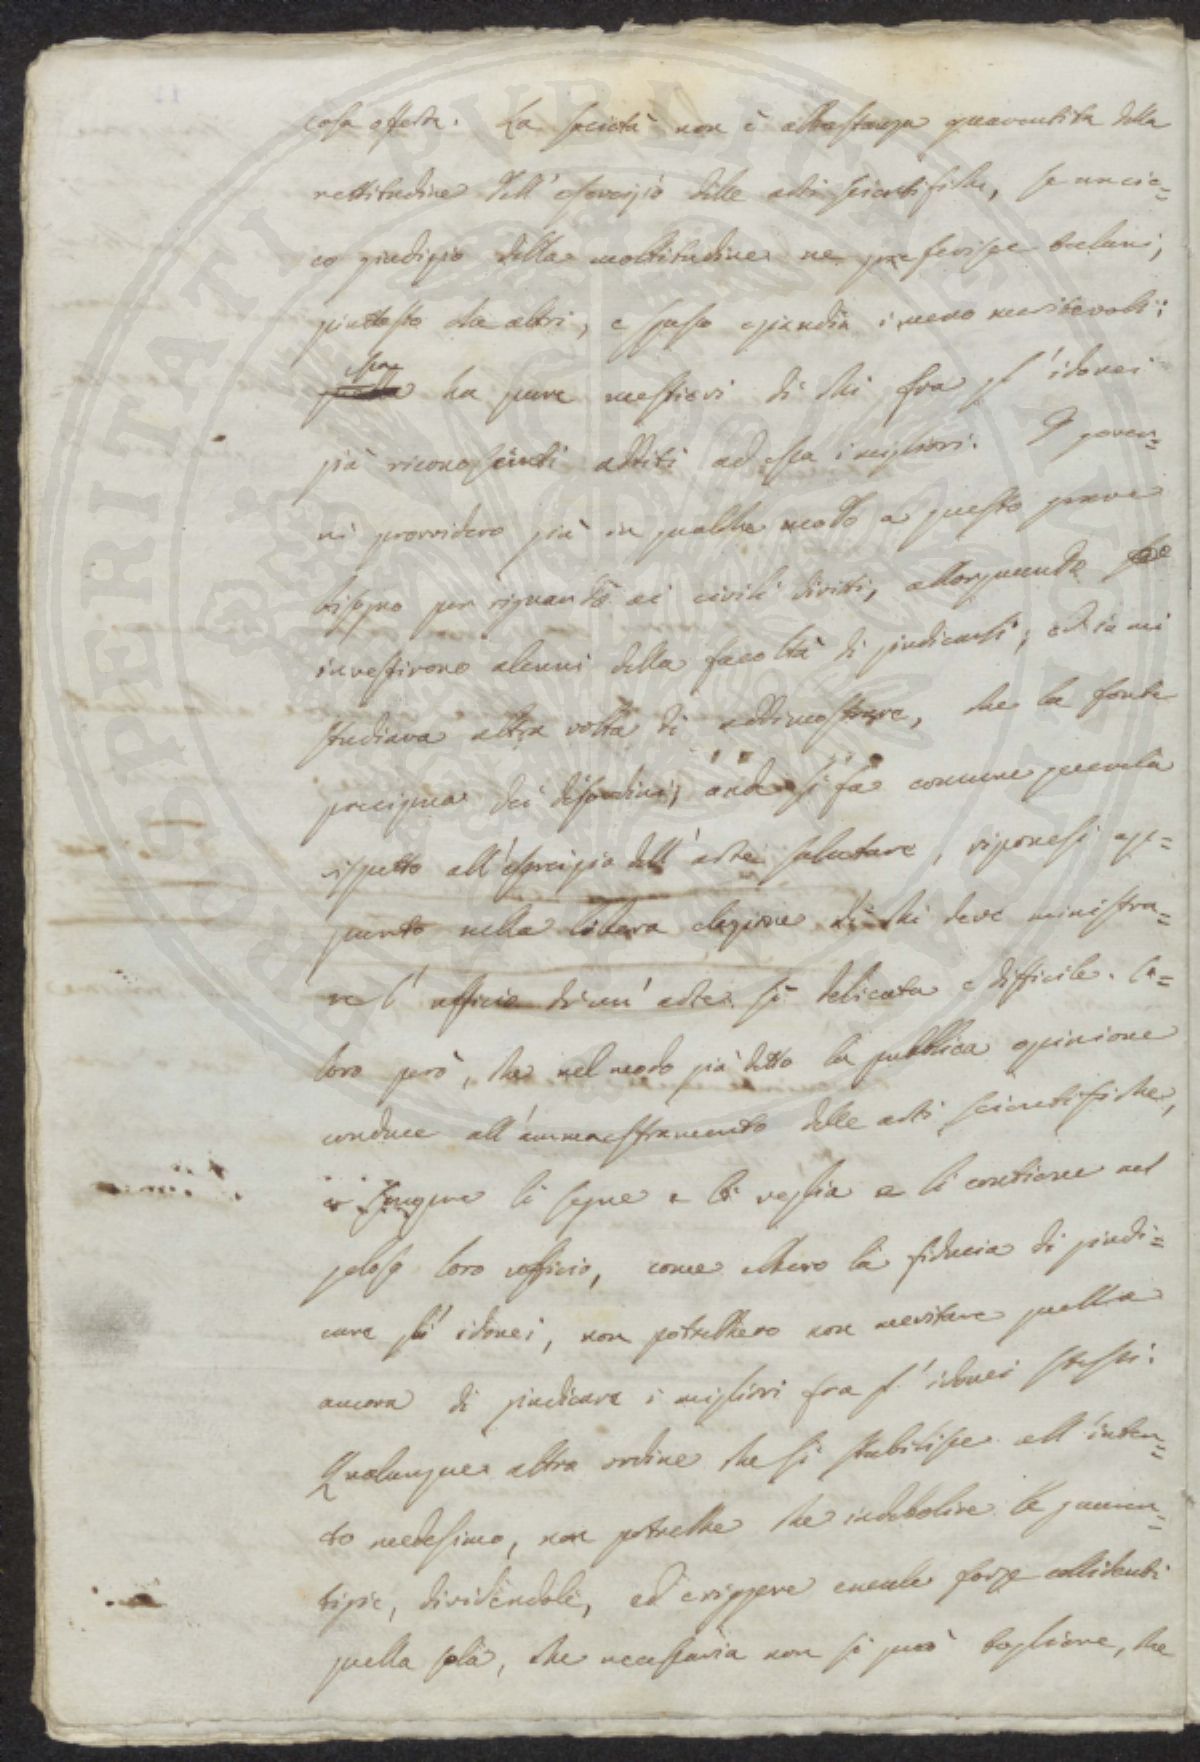 cosa offesa. La società non è abbastanza guarentita della
rettitudine dell'esercizio delle arti scientifiche, se un cie=
co giudizio della moltitudine ne preferisce taluni,
piuttosto che altri, e spesso eziandio i meno meritevoli;
essa ha pure mestieri di chi fra gl'idonei
già riconosciuti additi ad essa i migliori. I gover=
ni provvidero già in qualche modo a questo grave
bisogno per riguardo ai civili diritti, allorquando
investirono alcuni della facoltà di giudicarli; ed io mi
studiava altra volta di addimostrare, che la fonte
precipua dei disordini, onde si fa comune querela
rispetto all'esercizio dell'arte salutare, riponesi ap=
punto nella libera elezione di chi deve ministra=
re l'ufficio di un'arte sì delicata e difficile. Co=
loro però, che nel modo già detto la pubblica opinione
conduce all'ammaestramento delle arti scientifiche,
e dunque li segue e li veglia e li contiene nel
geloso loro ufficio, come ebbero la fiducia di giudi=
care gli idonei, non potrebbero non meritare quella
ancora di giudicare i migliori fra gl'idonei stessi.
Qualunque altro ordine che si stabilisse all'inten=
to medesimo, non potrebbe che indebolire le guaren=
tigie, dividendole, ed erigere eguale forze collidenti
quella sola, che necessaria non si può togliere, che